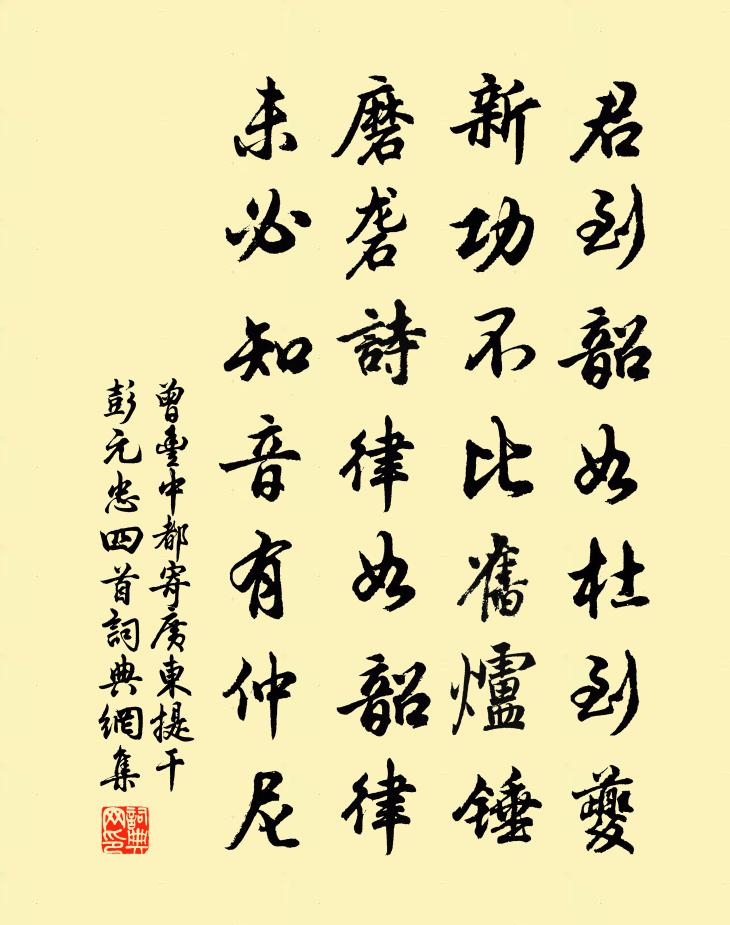 君到韶如杜到夔
新功不比舊爐錘
磨砻詩律如韶律
未必知音有仲尼
曾豐中都寄廣東提干
彭元忠四首詞典網集
詞典網印